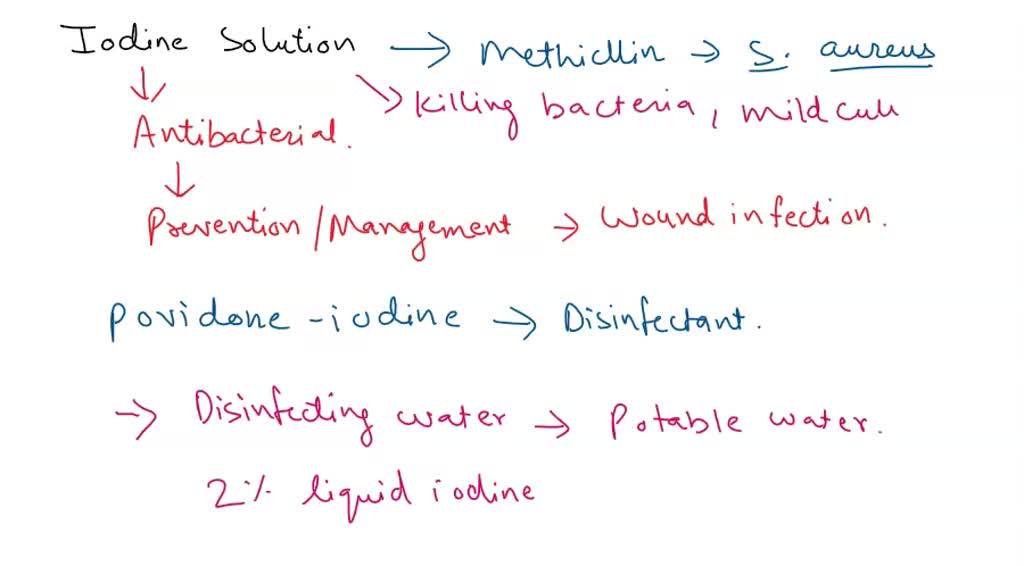 Iodine Solution → Methicllin → S. aureus
↓ ↘ Killing bacteria, mild cuts
Antibacterial.
↓
Prevention/Management → Wound infection.
Povidone-iodine → Disinfectant.
→ Disinfecting water → Potable water.
2% liquid iodine